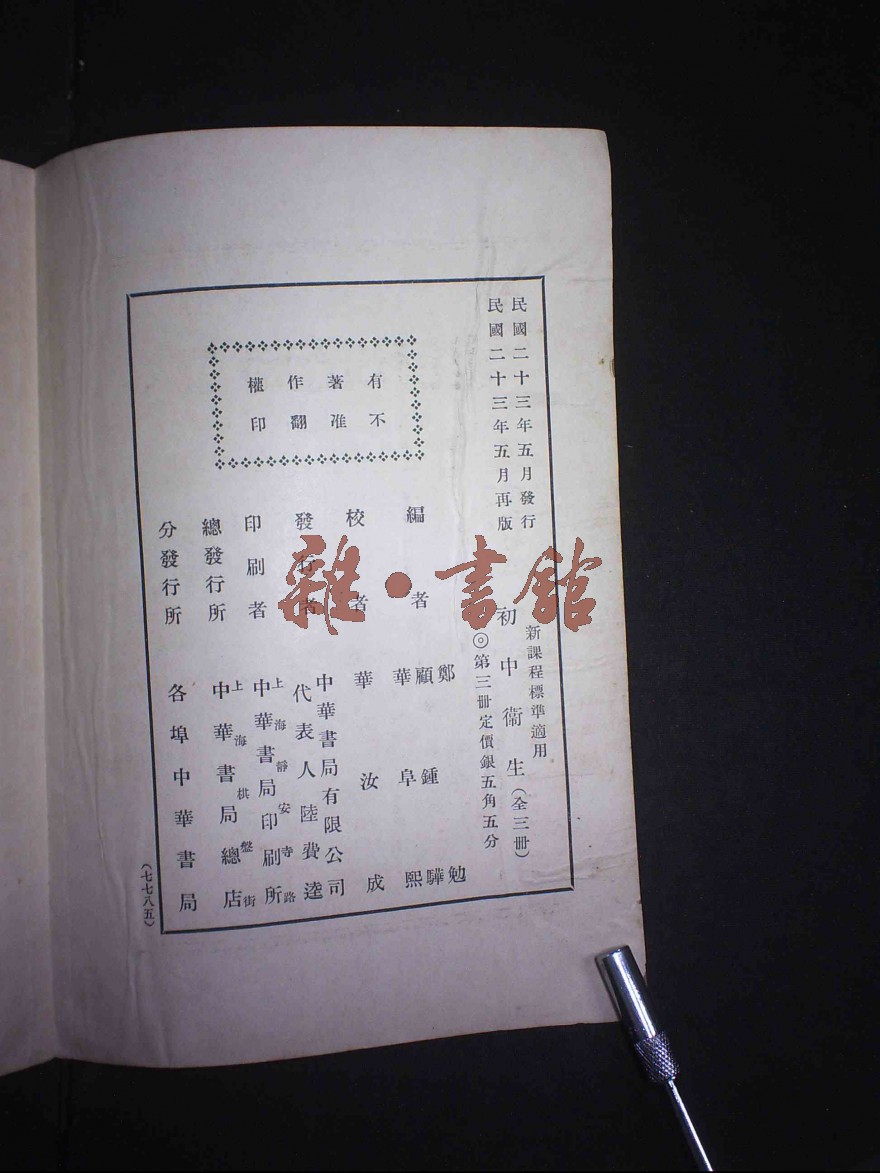 民國二十三年五月發行
民國二十三年五月再版
新課程標準適用
初中衞生(全三册)
◎第三册定價銀五角五分
有著作權
不准翻印
編者 鄭勉
顧鍾驊
華阜熙
校者 華汝成
發行者 中華書局有限公司
代表人 陸費逵
印刷者 上海靜安寺路
中華書局印刷所
總發行所 上海棋盤街
中華書局總店
分發行所 各埠中華書局
(七七八五)
雜·書館